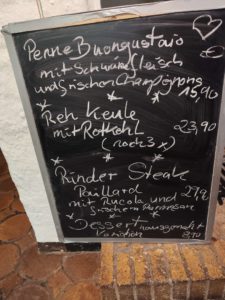 Penne Buongustaio
mit Schweinefleisch €
und frischen Champignons
15,90
Reh Keule
mit Rotkohl 23,90
(noch 3x)
Rinder Steak
Paillard
mit Rucola und
frischem Parmesan
Dessert hausgemacht
Variation 8,90